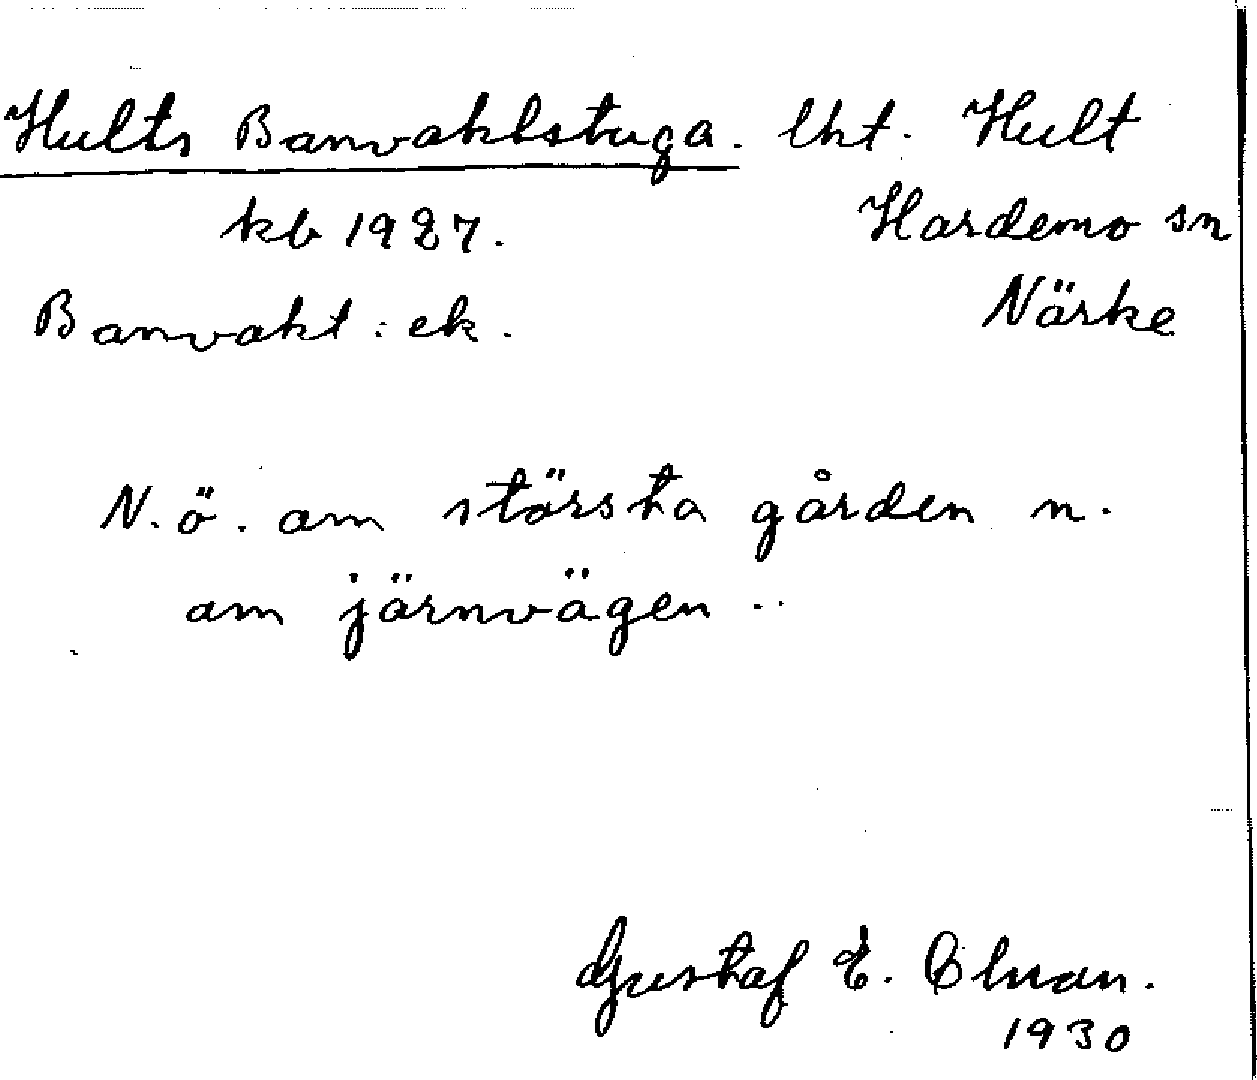 Hults Banvaktstuga. lht. Hult
kb 1927. Hardemo sn
Banvakt: ek. Närke
N. ö. om största gården n.
om järnvägen ..
Gustaf E.
1930